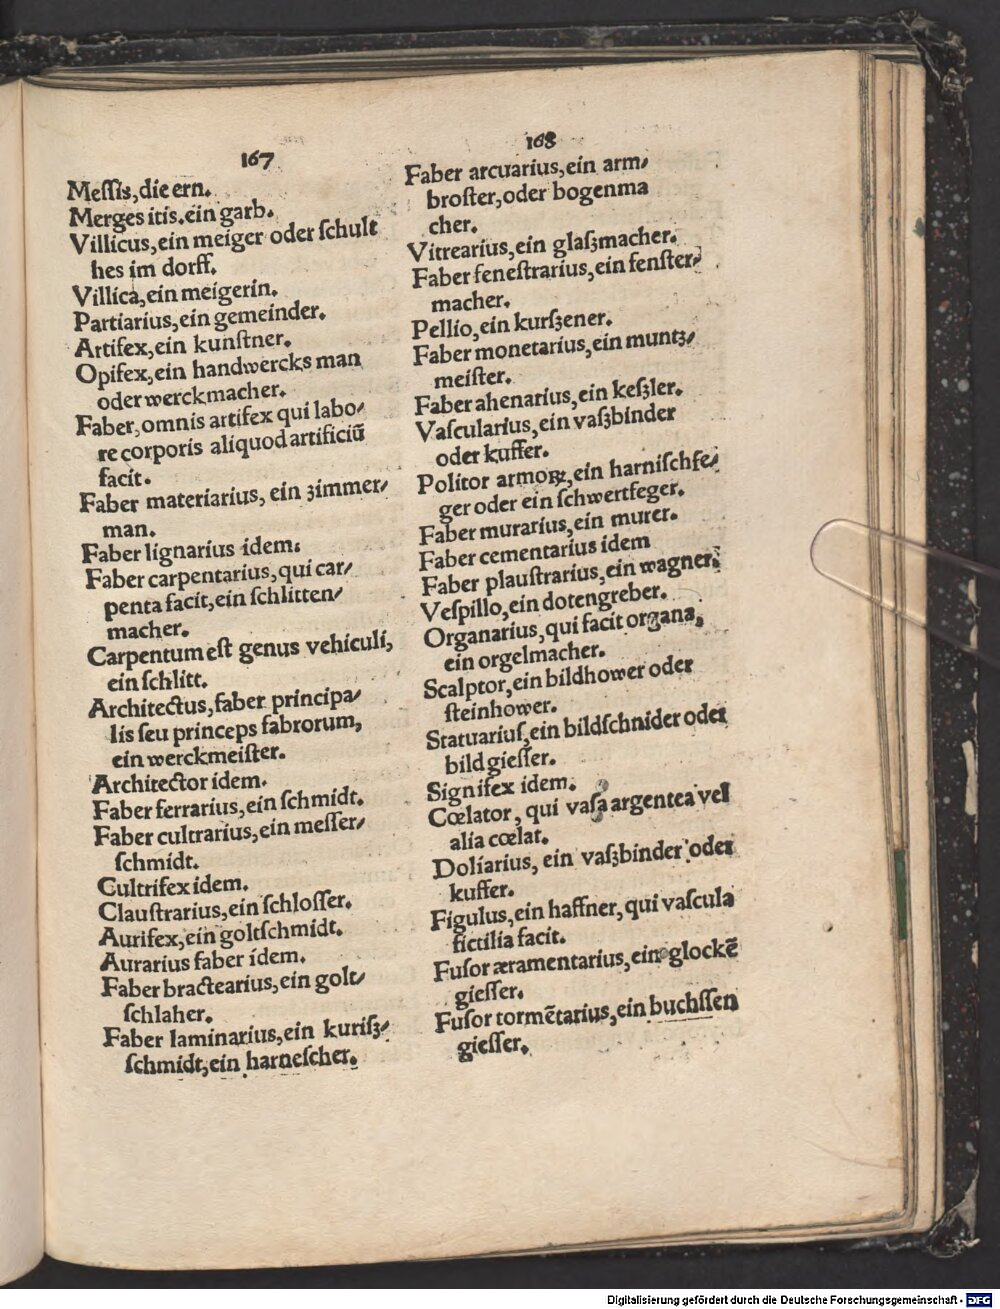 167
Meſſis, die ern.
Merges itis. ein garb.
Villicus, ein meiger oder ſchult
hes im dorff.
Villica, ein meigerin.
Partiarius, ein gemeinder.
Artifex, ein kunſtner.
Opifex, ein handwercks man
oder werckmacher.
Faber, omnis artifex qui labo⸗
re corporis aliquod artificiū
facit.
Faber materiarius, ein zimmer⸗
man.
Faber lignarius idem.
Faber carpentarius, qui car⸗
penta facit, ein ſchlitten⸗
macher.
Carpentum eſt genus vehiculi,
ein ſchlitt.
Architectus, faber principa⸗
lis ſeu princeps fabrorum,
ein werckmeiſter.
Architector idem.
Faber ferrarius, ein ſchmidt.
Faber cultrarius, ein meſſer⸗
ſchmidt.
Cultrifex idem.
Clauſtrarius, ein ſchloſſer.
Aurifex, ein goltſchmidt.
Aurarius faber idem.
Faber bractearius, ein golt⸗
ſchlaher.
Faber laminarius, ein kuriſz⸗
ſchmidt, ein harneſcher.
168
Faber arcuarius, ein arm⸗
broſter, oder bogenma
cher.
Vitrearius, ein glaſzmacher.
Faber feneſtrarius, ein fenſter⸗
macher.
Pellio, ein kurſzener.
Faber monetarius, ein muntz⸗
meiſter.
Faber ahenarius, ein keſzler.
Vaſcularius, ein vaſzbinder
oder kuffer.
Politor armoꝝ, ein harniſchfe⸗
ger oder ein ſchwertfeger.
Faber murarius, ein murer.
Faber cementarius idem
Faber plauſtrarius, ein wagner.
Veſpillo, ein dotengreber.
Organarius, qui facit organa,
ein orgelmacher.
Scalptor, ein bildhower oder
ſteinhower.
Statuariuſ, ein bildſchnider oder
bild gieſſer.
Signifex idem.
Cœlator, qui vaſa argentea vel
alia cœlat.
Doliarius, ein vaſzbinder oder
kuffer.
Figulus, ein haffner, qui vaſcula
fictilia facit.
Fuſor æramentarius, ein glockē
gieſſer.
Fuſor tormētarius, ein buchſſen
gieſſer.
Digitalisierung gefördert durch die Deutsche Forschungsgemeinschaft - DFG